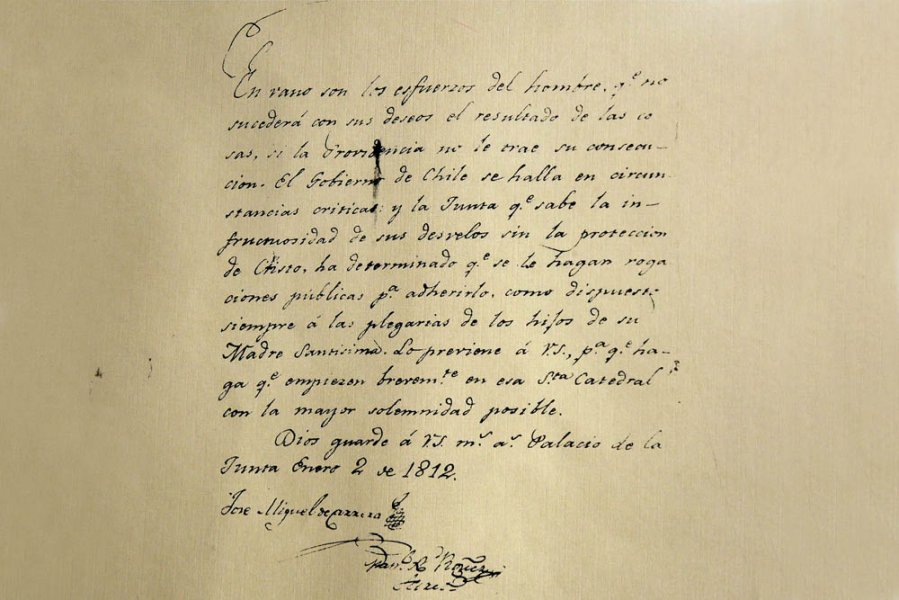 En vano son los esfuerzos del hombre, q.e no
sucederá con sus deseos el resultado de las co
sas, si la Providencia no le trae su consecu-
cion. El Gobierno de Chile se halla en circun
stancias criticas: y la Junta q.e sabe la in-
fructuosidad de sus desvelos sin la proteccion
de Cristo, ha determinado q.e se le hagan roga
ciones publicas p.a adherirlo, como dispuesto
siempre á las plegarias de los hijos de su
Madre Santisima. Lo previene á V.S., p.a q.e ha-
ga q.e empiezen brevem.te en esa S.ta Catedral
con la mayor solemnidad posible.
Dios guarde á V.S. m.s a.s Palacio de la
Junta Enero 2 de 1812.
José Miguel de Carrera